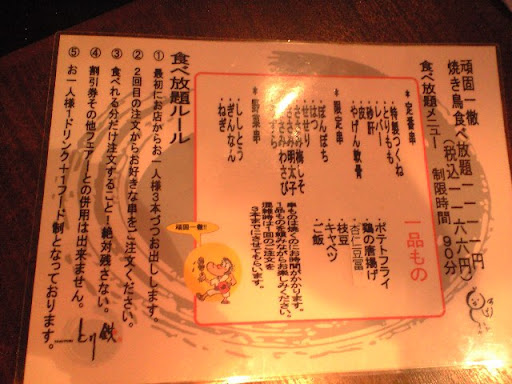 頑固一徹
焼き鳥食べ放題一一一一円
(税込一一六六円)
食べ放題メニュー 制限時間 90分
*定番串
特製つくね
とりもも
レバー
砂肝
皮
やげん軟骨
*限定串
ぼんぼち
はつ
せせり
ささみ梅しそ
ささみ明太子
ささみわさび
*野菜串
ししとう
ぎんなん
ねぎ
一品もの
ポテトフライ
鶏の唐揚げ
杏仁豆冨
枝豆
キャベツ
ご飯
串ものは焼くのにお時間がかかります。
一品ものを各種ご覧ながらお楽しみください。
混雑時は1回のご注文を
3本までにさせてもらいます。
頑固一徹!!
食べ放題ルール
①最初にお店からお一人様3本づつお出しします。
②2回目の注文からお好きな串をご注文ください。
③食べれる分だけ注文すること!絶対残さない。
④割引券その他フェアーとの併用は出来ません。
⑤お一人様1ドリンク+1フード制となっております。
とり鉄